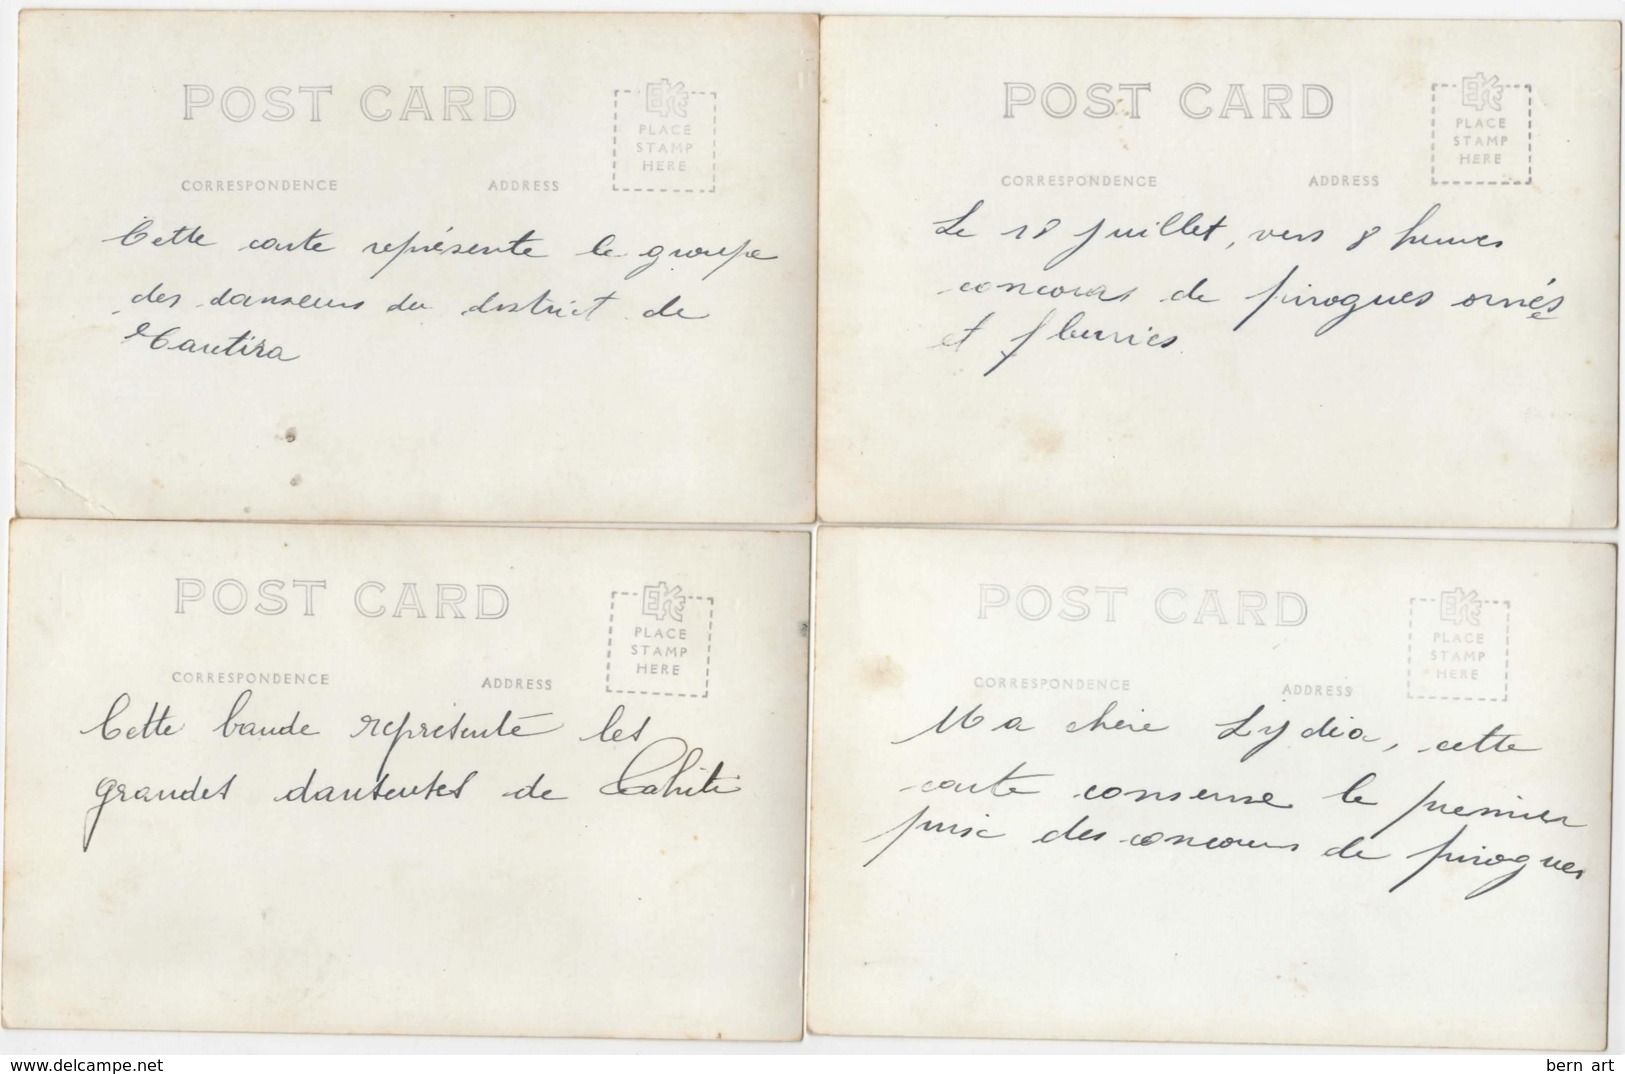 POST CARD
EKC
PLACE
STAMP
HERE
CORRESPONDENCE ADDRESS
Cette carte représente le groupe
des danseurs du district de
Tautira
POST CARD
EKC
PLACE
STAMP
HERE
CORRESPONDENCE ADDRESS
Le 18 Juillet, vers 8 heures
concours de pirogues ornés
et fleuries
POST CARD
EKC
PLACE
STAMP
HERE
CORRESPONDENCE ADDRESS
Cette bande représente les
grandes danseuses de Tahiti
POST CARD
EKC
PLACE
STAMP
HERE
CORRESPONDENCE ADDRESS
Ma chère Lydia, cette
carte conserne le premier
prix des concours de pirogues
delcampe.net
bern art